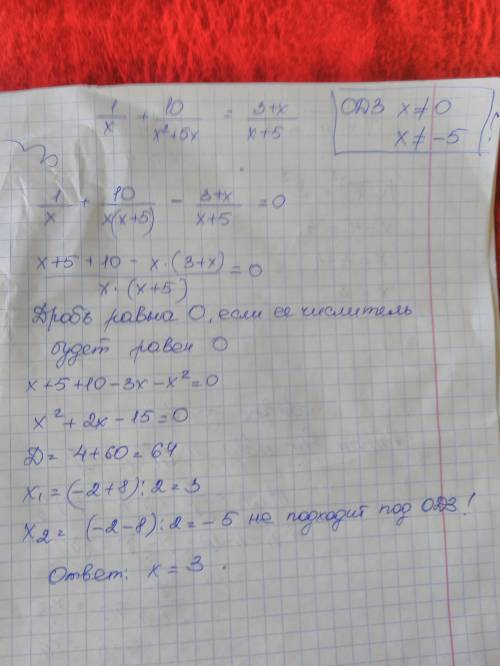 1/x + 10/(x²+5x) = (3+x)/(x+5)
ОДЗ x≠0
x≠-5
1/x + 10/(x(x+5)) - (3+x)/(x+5) = 0
(x+5+10-x·(3+x))/(x·(x+5)) = 0
Дробь равна 0, если ее числитель
будет равен 0
x+5+10-3x-x²=0
x²+2x-15=0
Д= 4+60=64
x₁=(-2+8):2=3
x₂= (-2-8):2=-5 не подходит под ОДЗ!
Ответ: x=3.